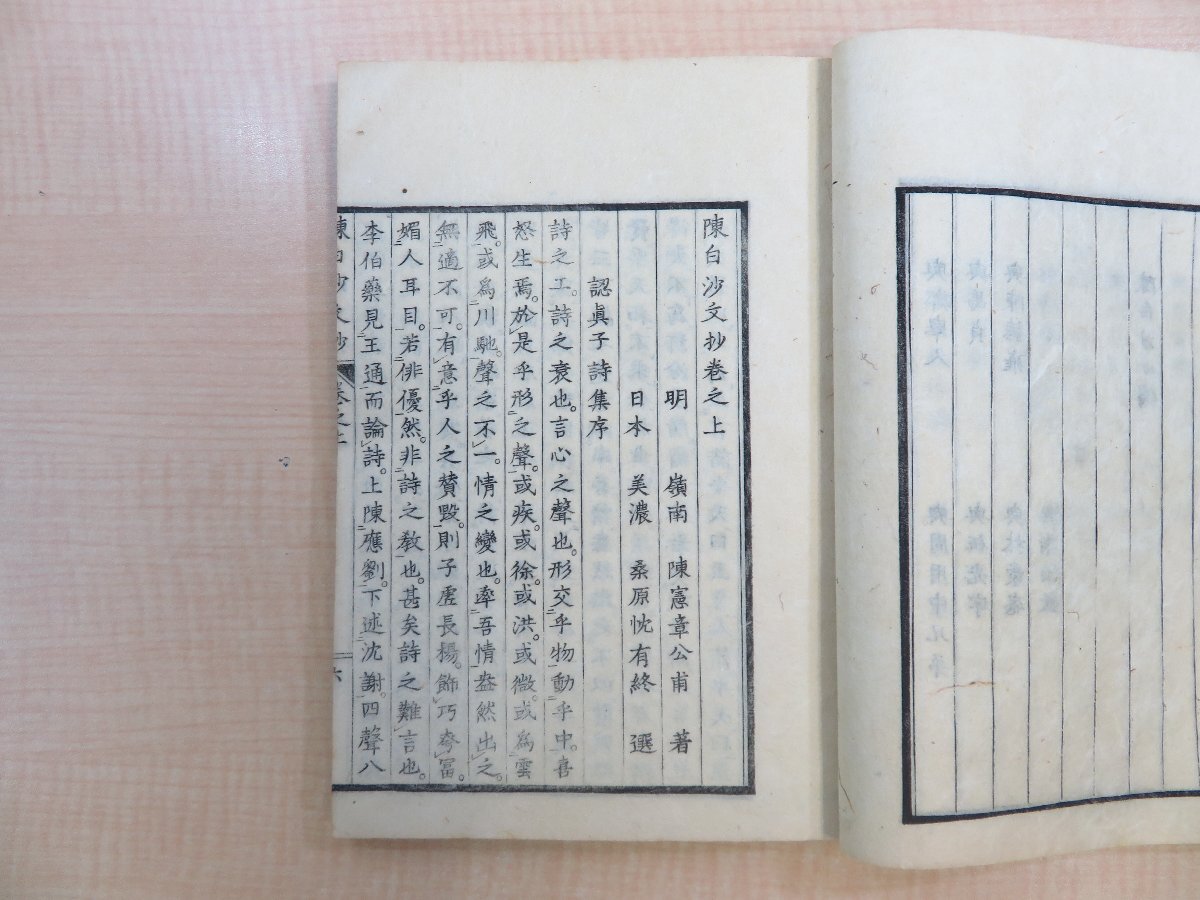 陳白沙文抄卷之上
明 嶺南 陳憲章公甫 著
日本 美濃 桑原忱有終 選
認眞子詩集序
詩之工。詩之衰也。言心之聲也。形交乎物動乎中。喜
怒生焉。於是乎形之聲。或疾。或徐。或洪。或微。或爲雲
飛。或爲川馳。聲之不一。情之變也。率吾情盎然出之。
無適不可。有意乎人之贊毀。則子虛長楊。飾巧夸富。
媚人耳目。若俳優然。非詩之敎也。甚矣詩之難言也。
李伯藥見王通而論詩。上陳應劉。下述沈謝。四聲八
陳白沙文抄 卷之上 六